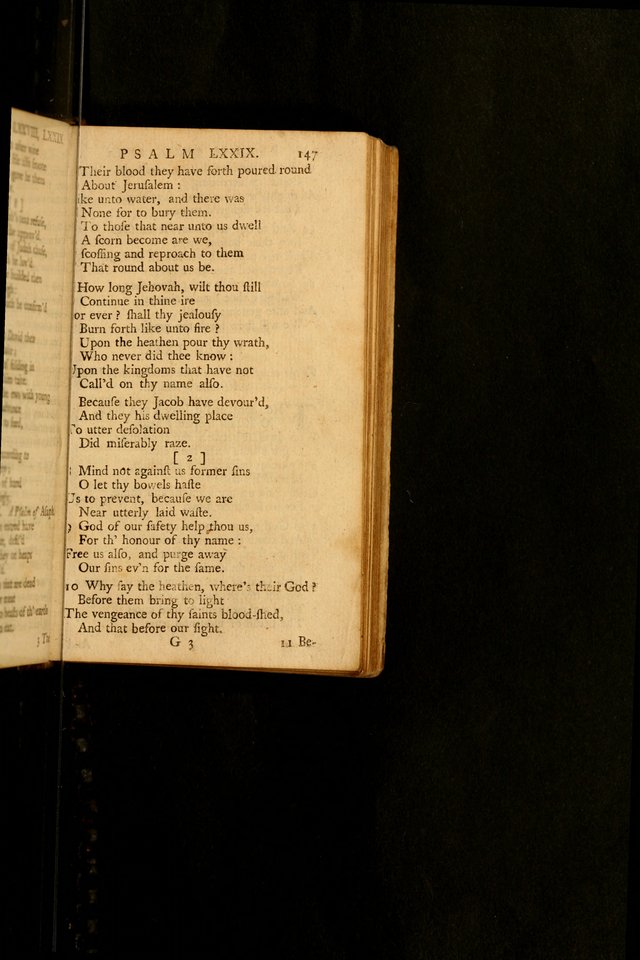 LXXVIII, LXXIX
PSALM LXXIX. 147
Their blood they have forth poured round
About Jeruſalem :
ike unto water, and there was
None for to bury them.
To thoſe that near unto us dwell
A ſcorn become are we,
ſcoffing and reproach to them
That round about us be.
How long Jehovah, wilt thou ſtill
Continue in thine ire
or ever ? ſhall thy jealouſy
Burn forth like unto fire ?
Upon the heathen pour thy wrath,
Who never did thee know :
Upon the kingdoms that have not
Call'd on thy name alſo.
Becauſe they Jacob have devour'd,
And they his dwelling place
To utter deſolation
Did miſerably raze.
[ 2 ]
Mind not againſt us former ſins
O let thy bowels haſte
Us to prevent, becauſe we are
Near utterly laid waſte.
9 God of our ſafety help thou us,
For th' honour of thy name :
Free us alſo, and purge away
Our ſins ev'n for the ſame.
10 Why ſay the heathen, where's their God ?
Before them bring to light
The vengeance of thy ſaints blood-ſhed,
And that before our ſight.
G 3 11 Be-